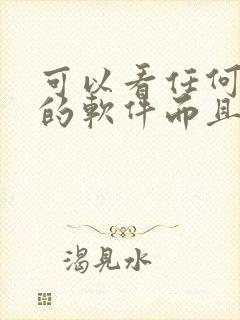 可以看任何
的軟件而且
渴見水